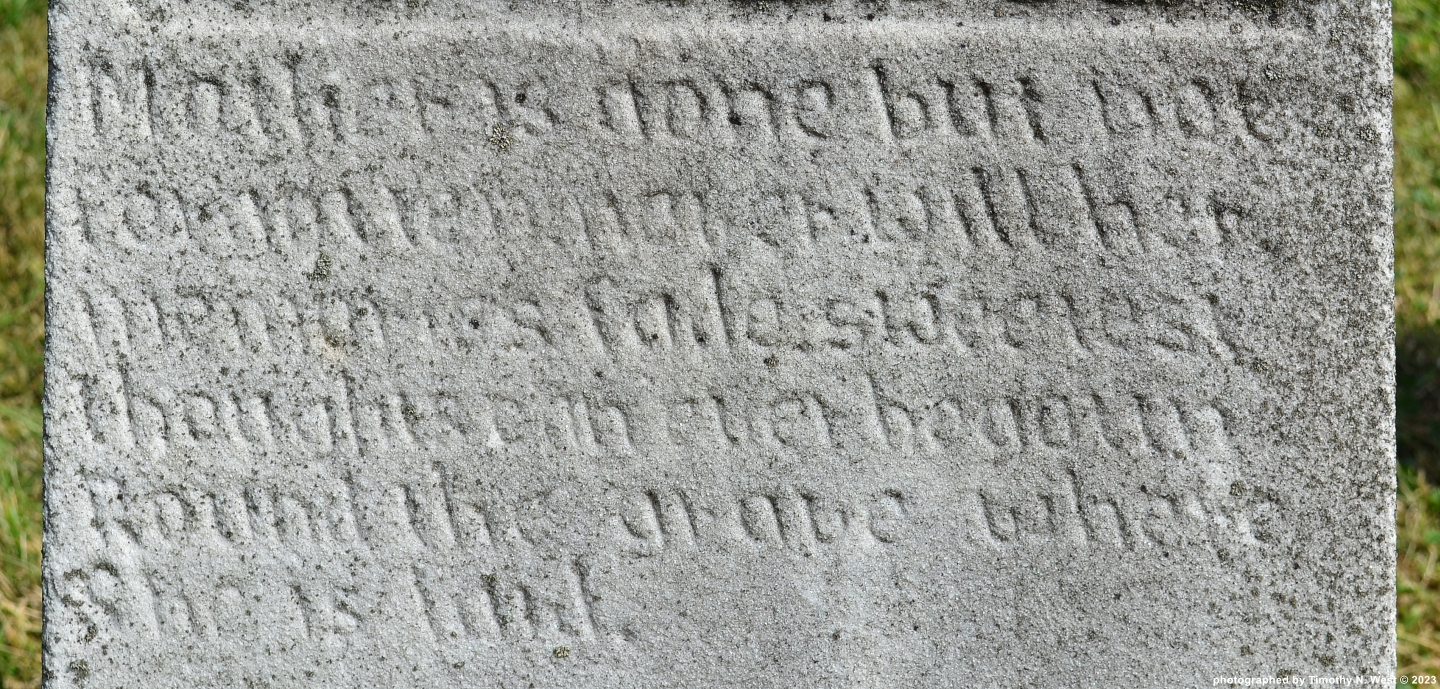 Mother is gone but not
forgotten never will her
memories fade sweetest
thoughts
Round the grave where
She is laid.
photographed by Timothy N. West © 2023